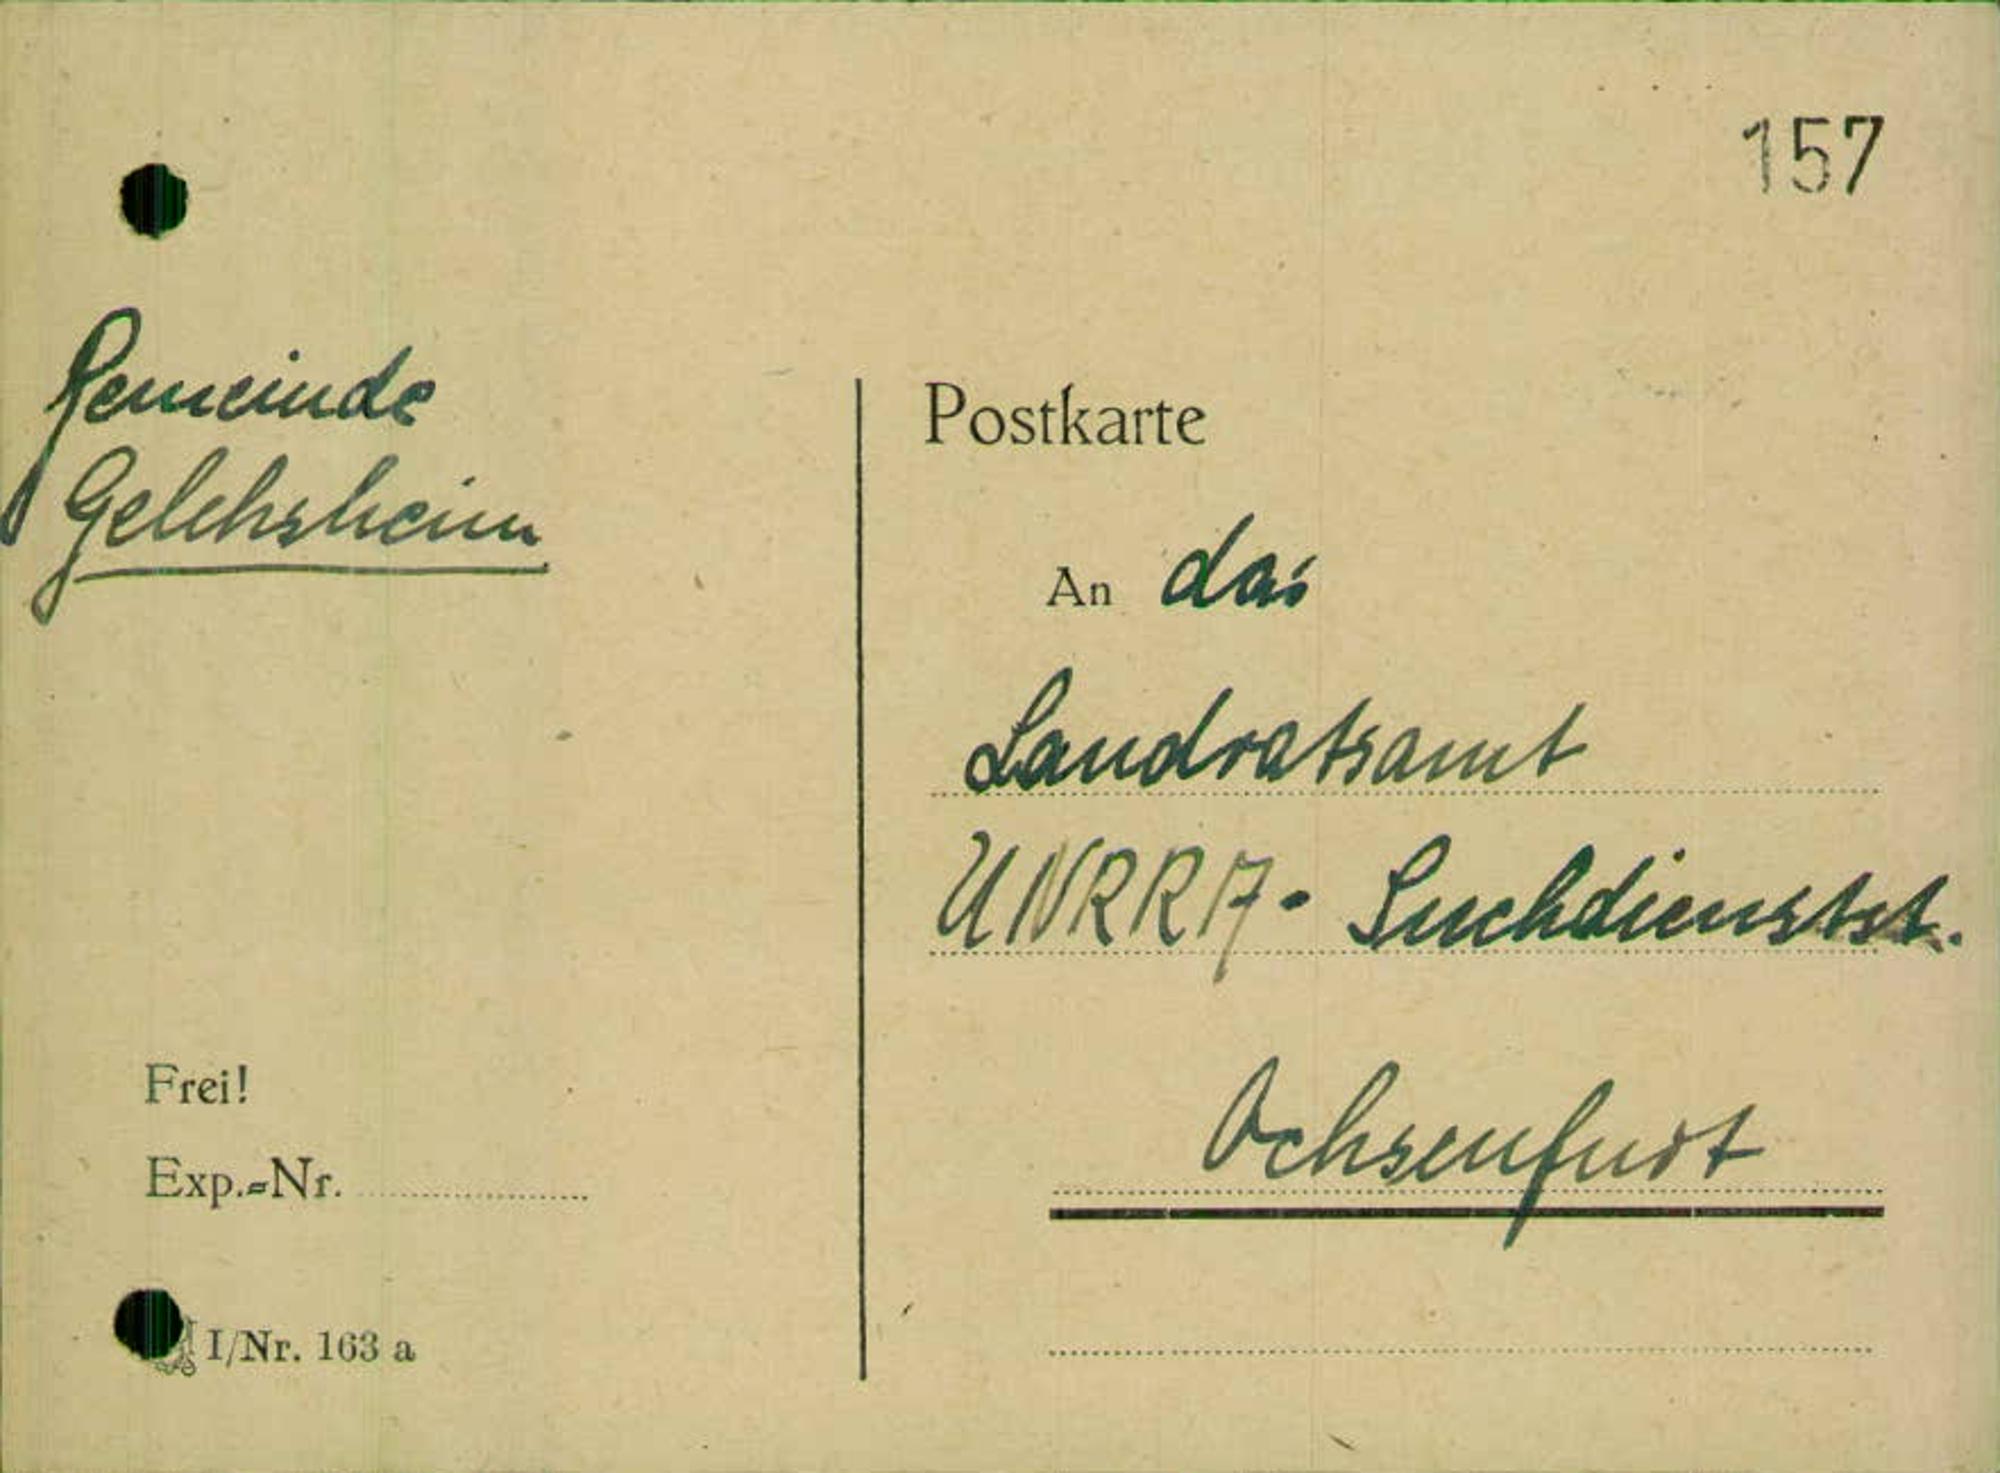 157
Gemeinde
Gelchsheim
Postkarte
An das
Landratsamt
UNRRA- Suchdienstst.
Ochsenfurt
Frei!
Exp.-Nr.
I/Nr. 163 a